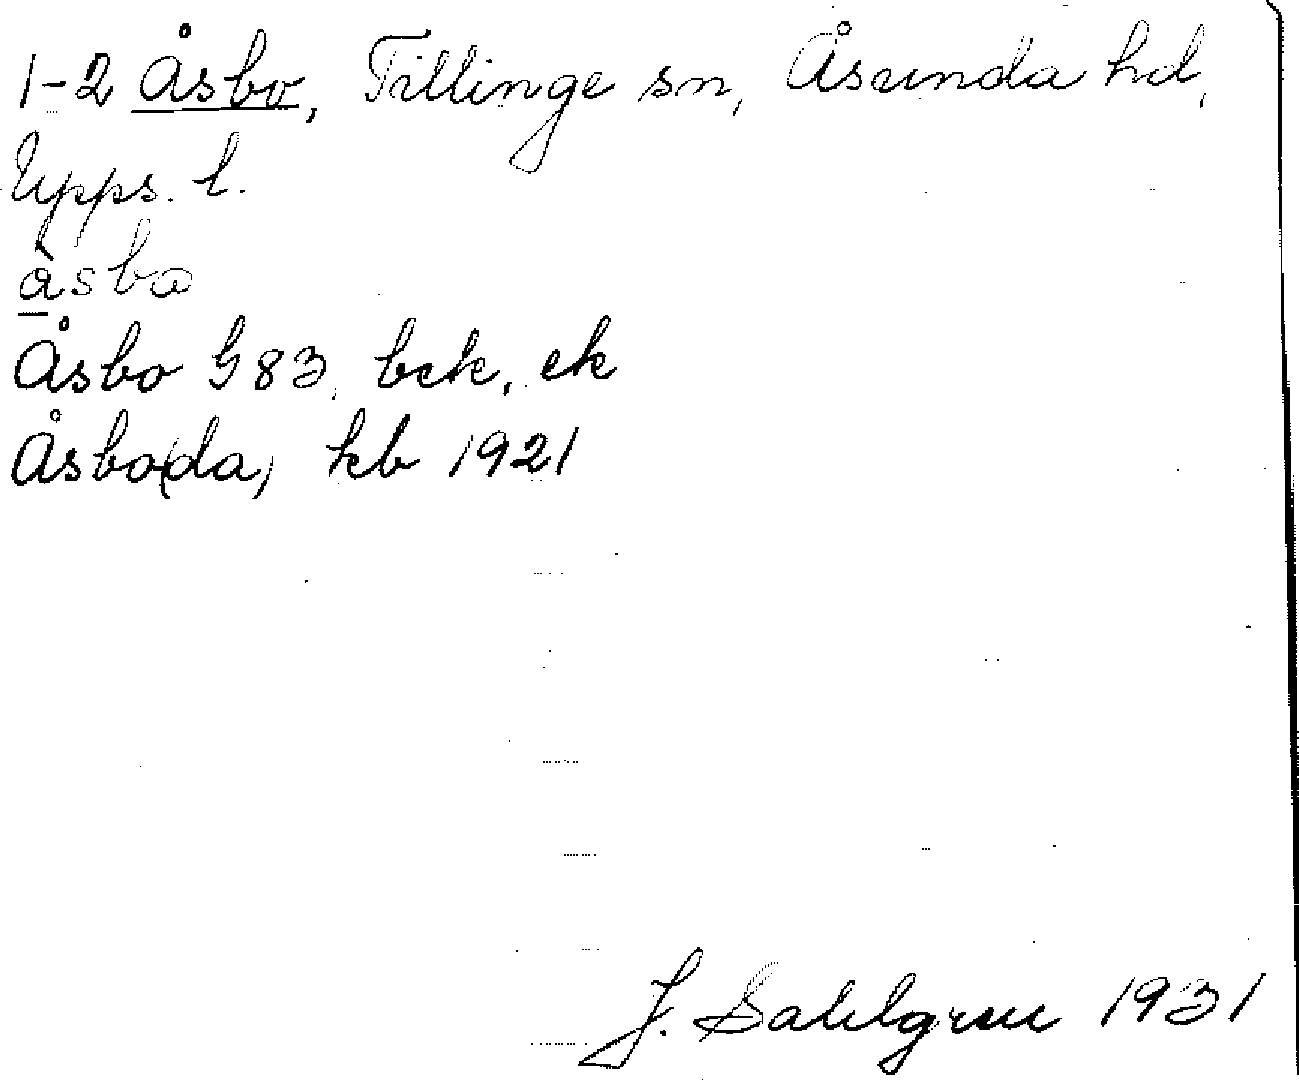 1-2 Åsbo, Tillinge sn, Åsunda hd,
Upps. l.
àsbo
Åsbo G83, bek, ek
Åsbo(da), kb 1921
J. Sahlgren 1931